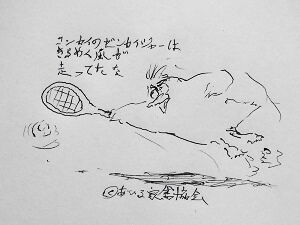 コンカイのゼンカイジャーは
きらめく風が
走ってたな
©あひる協会